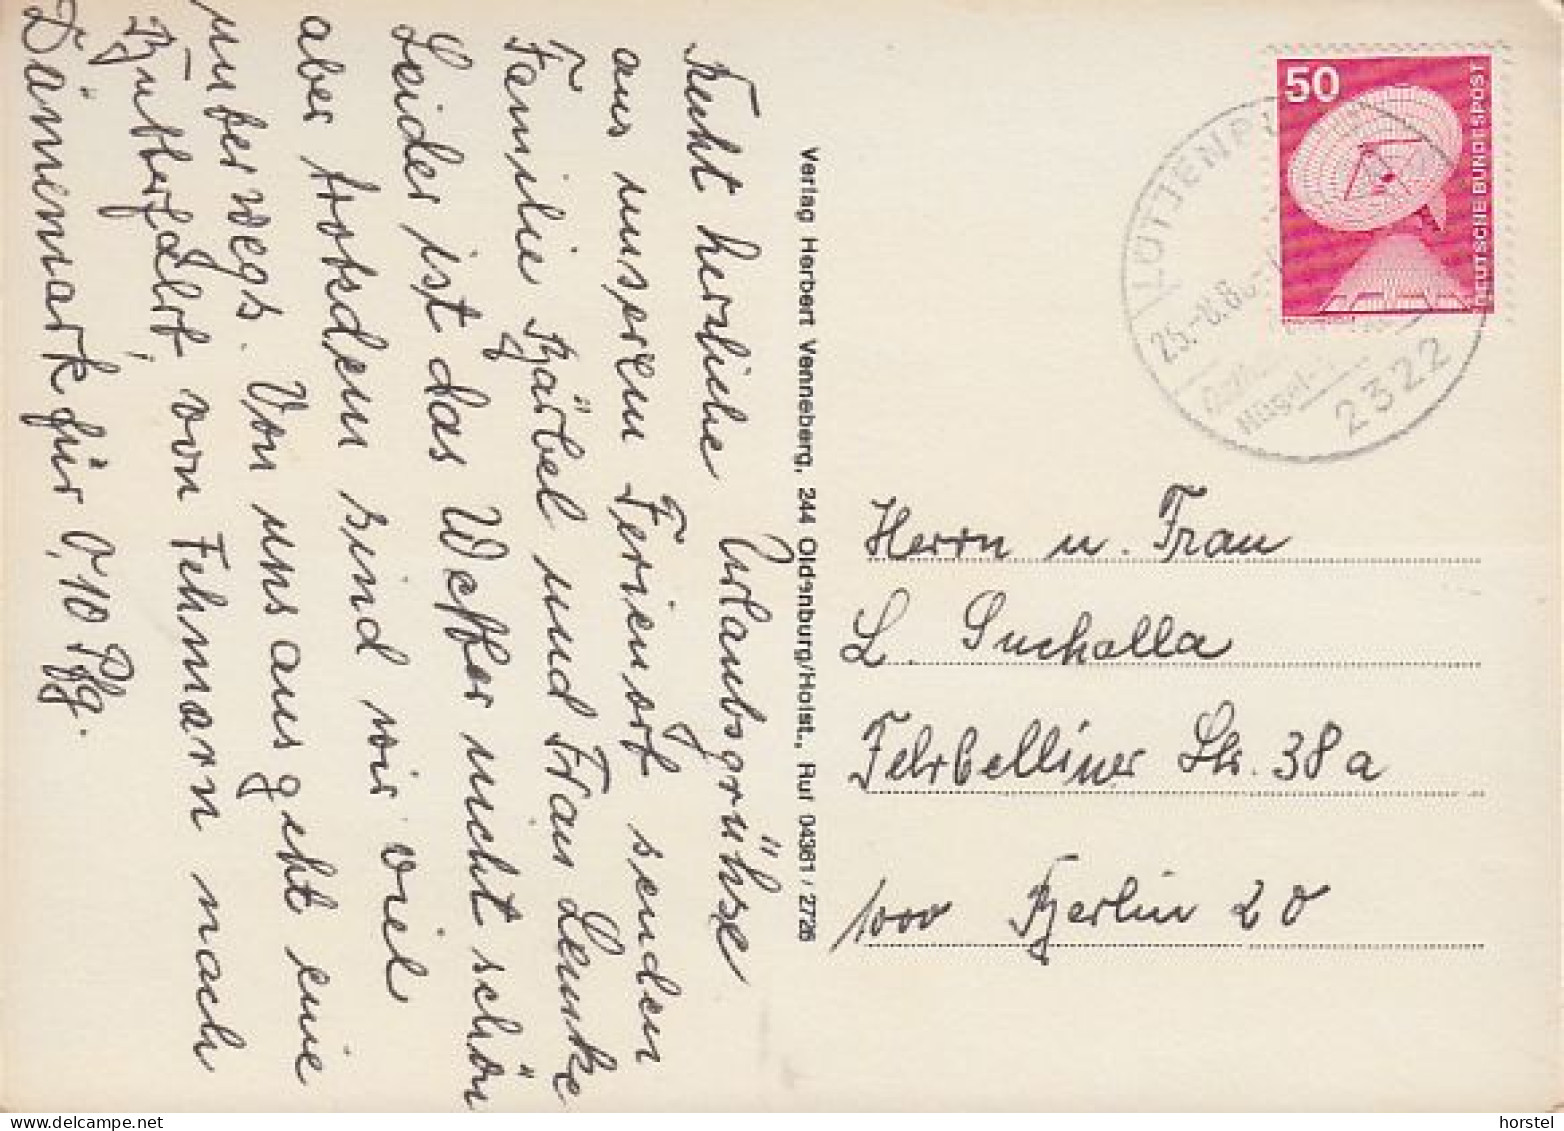 Recht herzliche Urlaubsgrühse
aus unserem Ferienort senden
Familie Bärbel und Frau Lemke
Leider ist das Wetter nicht schön
aber trotsdem sind wir viel
unterwegs. Von uns aus geht eine
Butterfahrt, von Fehmarn nach
Dänemark für 0,10 Pfg.
Verlag Herbert Venneberg, 244 Oldenburg/Holst., Ruf 04361 / 2726
50
DEUTSCHE BUNDESPOST
25.-8.80
2322
Herrn u. Frau
L. Suchalla
Fehrbelliner Str. 38a
1000 Berlin 20
horstel